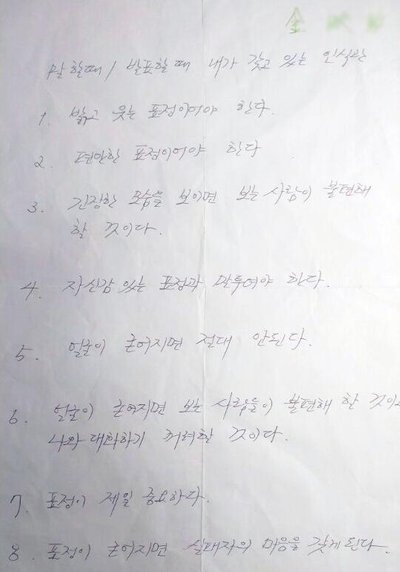 말할때/발표할때 내가 갖고 있는 인식은
1. 밝고 웃는 표정이어야 한다.
2. 편안한 표정이어야 한다
3. 긴장한 모습을 보이면 보는 사람이 불편해
할 것이다.
4. 자신감 있는 표정과 말투여야 한다.
5. 얼굴이 굳어지면 절대 안된다.
6. 얼굴이 굳어지면 보는 사람들이 불편해 할 것이고
나와 대화하기 꺼려할 것이다.
7. 표정이 제일 중요하다.
8. 표정이 굳어지면 실패자의 마음을 갖게된다.